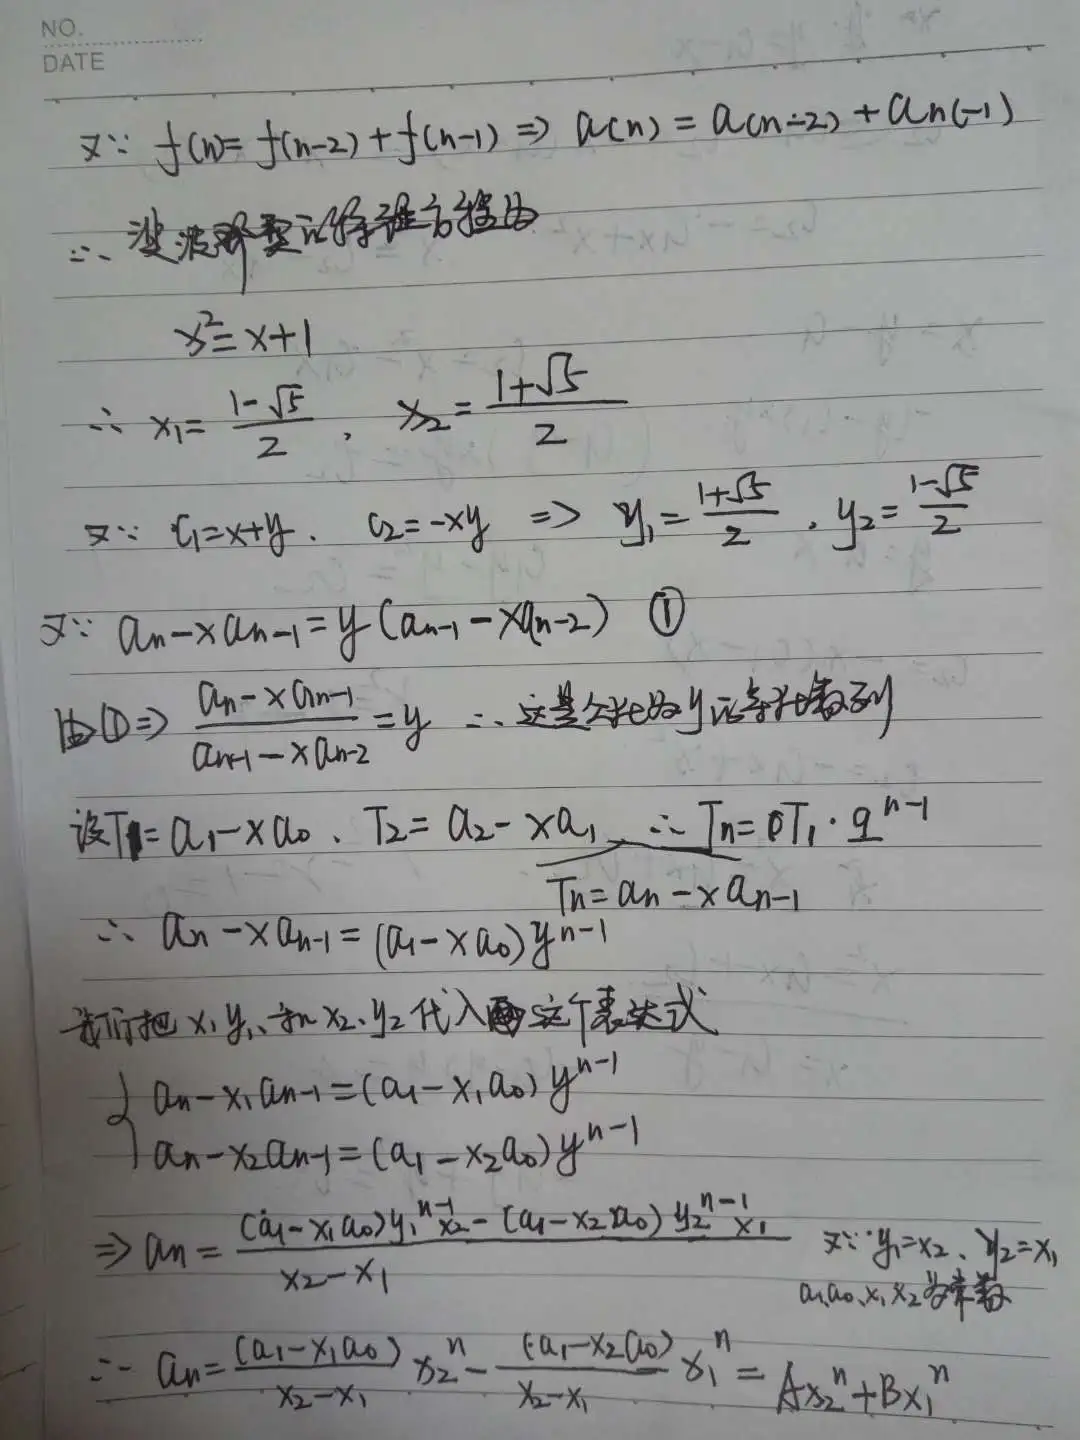 NO.
DATE
又∵ f(n)=f(n-2)+f(n-1) ⇒ a(n)=a(n-2)+an(-1)
∴ 波波那契的特征方程为
x²=x+1
∴ x₁=(1-√5)/2, x₂=(1+√5)/2
又∵ c₁=x+y. c₂=-xy ⇒ y₁=(1+√5)/2. y₂=(1-√5)/2
又∵ aₙ-xaₙ₋₁=y(aₙ₋₁-xaₙ₋₂) ①
由①⇒ (aₙ-xaₙ₋₁)/(aₙ₋₁-xaₙ₋₂)=y ∴这是个比为y的等比数列
设T₁=a₁-xa₀、T₂=a₂-xa₁ ∴Tₙ=T₁·qⁿ⁻¹
Tₙ=aₙ-xaₙ₋₁
∴ aₙ-xaₙ₋₁=(a₁-xa₀)yⁿ⁻¹
我们把x₁y₁、和x₂、y₂代入这个表达式
aₙ-x₁aₙ₋₁=(a₁-x₁a₀)yⁿ⁻¹
aₙ-x₂aₙ₋₁=(a₁-x₂a₀)yⁿ⁻¹
⇒ aₙ=((a₁-x₁a₀)y₁ⁿ⁻¹x₂-(a₁-x₂a₀)y₂ⁿ⁻¹x₁)/(x₂-x₁) 又∵y₁=x₂、y₂=x₁
a₁a₀、x₁x₂为常数
∴ aₙ=(a₁-x₁a₀)/(x₂-x₁) x₂ⁿ-(a₁-x₂a₀)/(x₂-x₁) x₁ⁿ=Ax₂ⁿ+Bx₁ⁿ